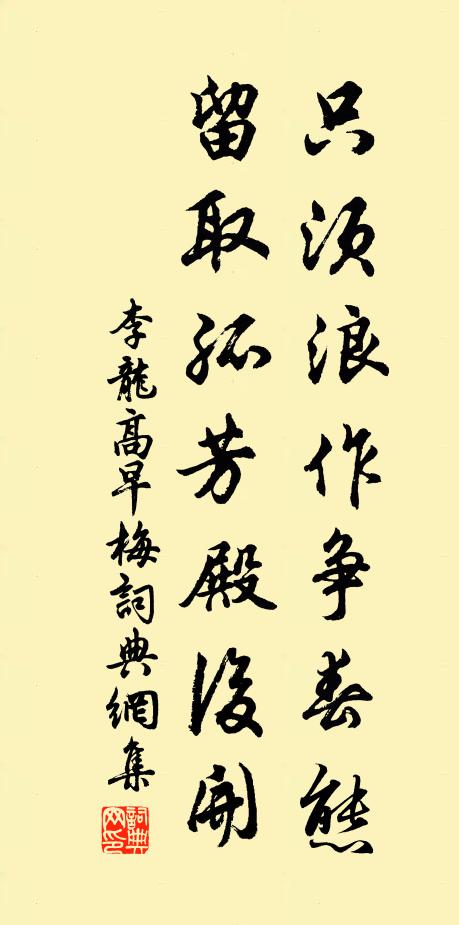 只须浪作争春態
留取孤芳殿後開
李龍高早梅詞典網集
詞典網印